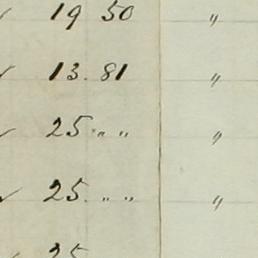 ✓ 19 50 "
✓ 13.81 "
✓ 25 " " "
✓ 25. " " "
25